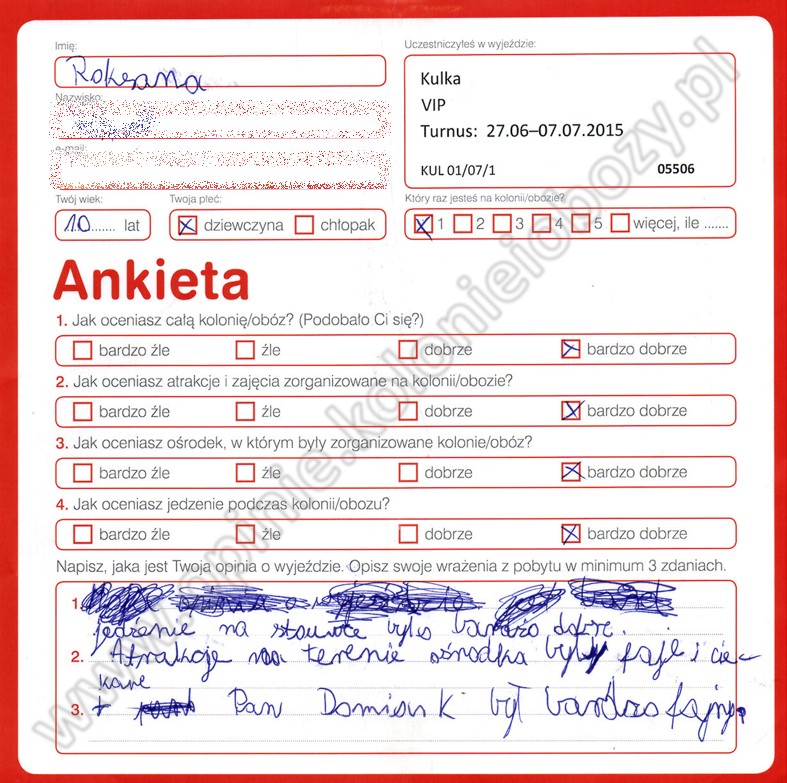 Imię:
Roksana
Uczestniczyłeś w wyjeździe:
Kulka
VIP
Turnus: 27.06–07.07.2015
KUL 01/07/1 05506
Nazwisko:
e-mail:
Twój wiek:
10....... lat
Twoja płeć:
dziewczyna chłopak
Który raz jesteś na kolonii/obozie?
1 2 3 4 5 więcej, ile .......
Ankieta
1. Jak oceniasz całą kolonię/obóz? (Podobało Ci się?)
bardzo źle źle dobrze bardzo dobrze
2. Jak oceniasz atrakcje i zajęcia zorganizowane na kolonii/obozie?
bardzo źle źle dobrze bardzo dobrze
3. Jak oceniasz ośrodek, w którym były zorganizowane kolonie/obóz?
bardzo źle źle dobrze bardzo dobrze
4. Jak oceniasz jedzenie podczas kolonii/obozu?
bardzo źle źle dobrze bardzo dobrze
Napisz, jaka jest Twoja opinia o wyjeździe. Opisz swoje wrażenia z pobytu w minimum 3 zdaniach.
1.
jedzenie na stouwce było bardzo dobre.
2. Atrakcje na terenie ośrodka były fajne i cie-
kawe
3. + Pan Domianik był bardzo fajny.
www.opinie.kolonieiobozy.pl